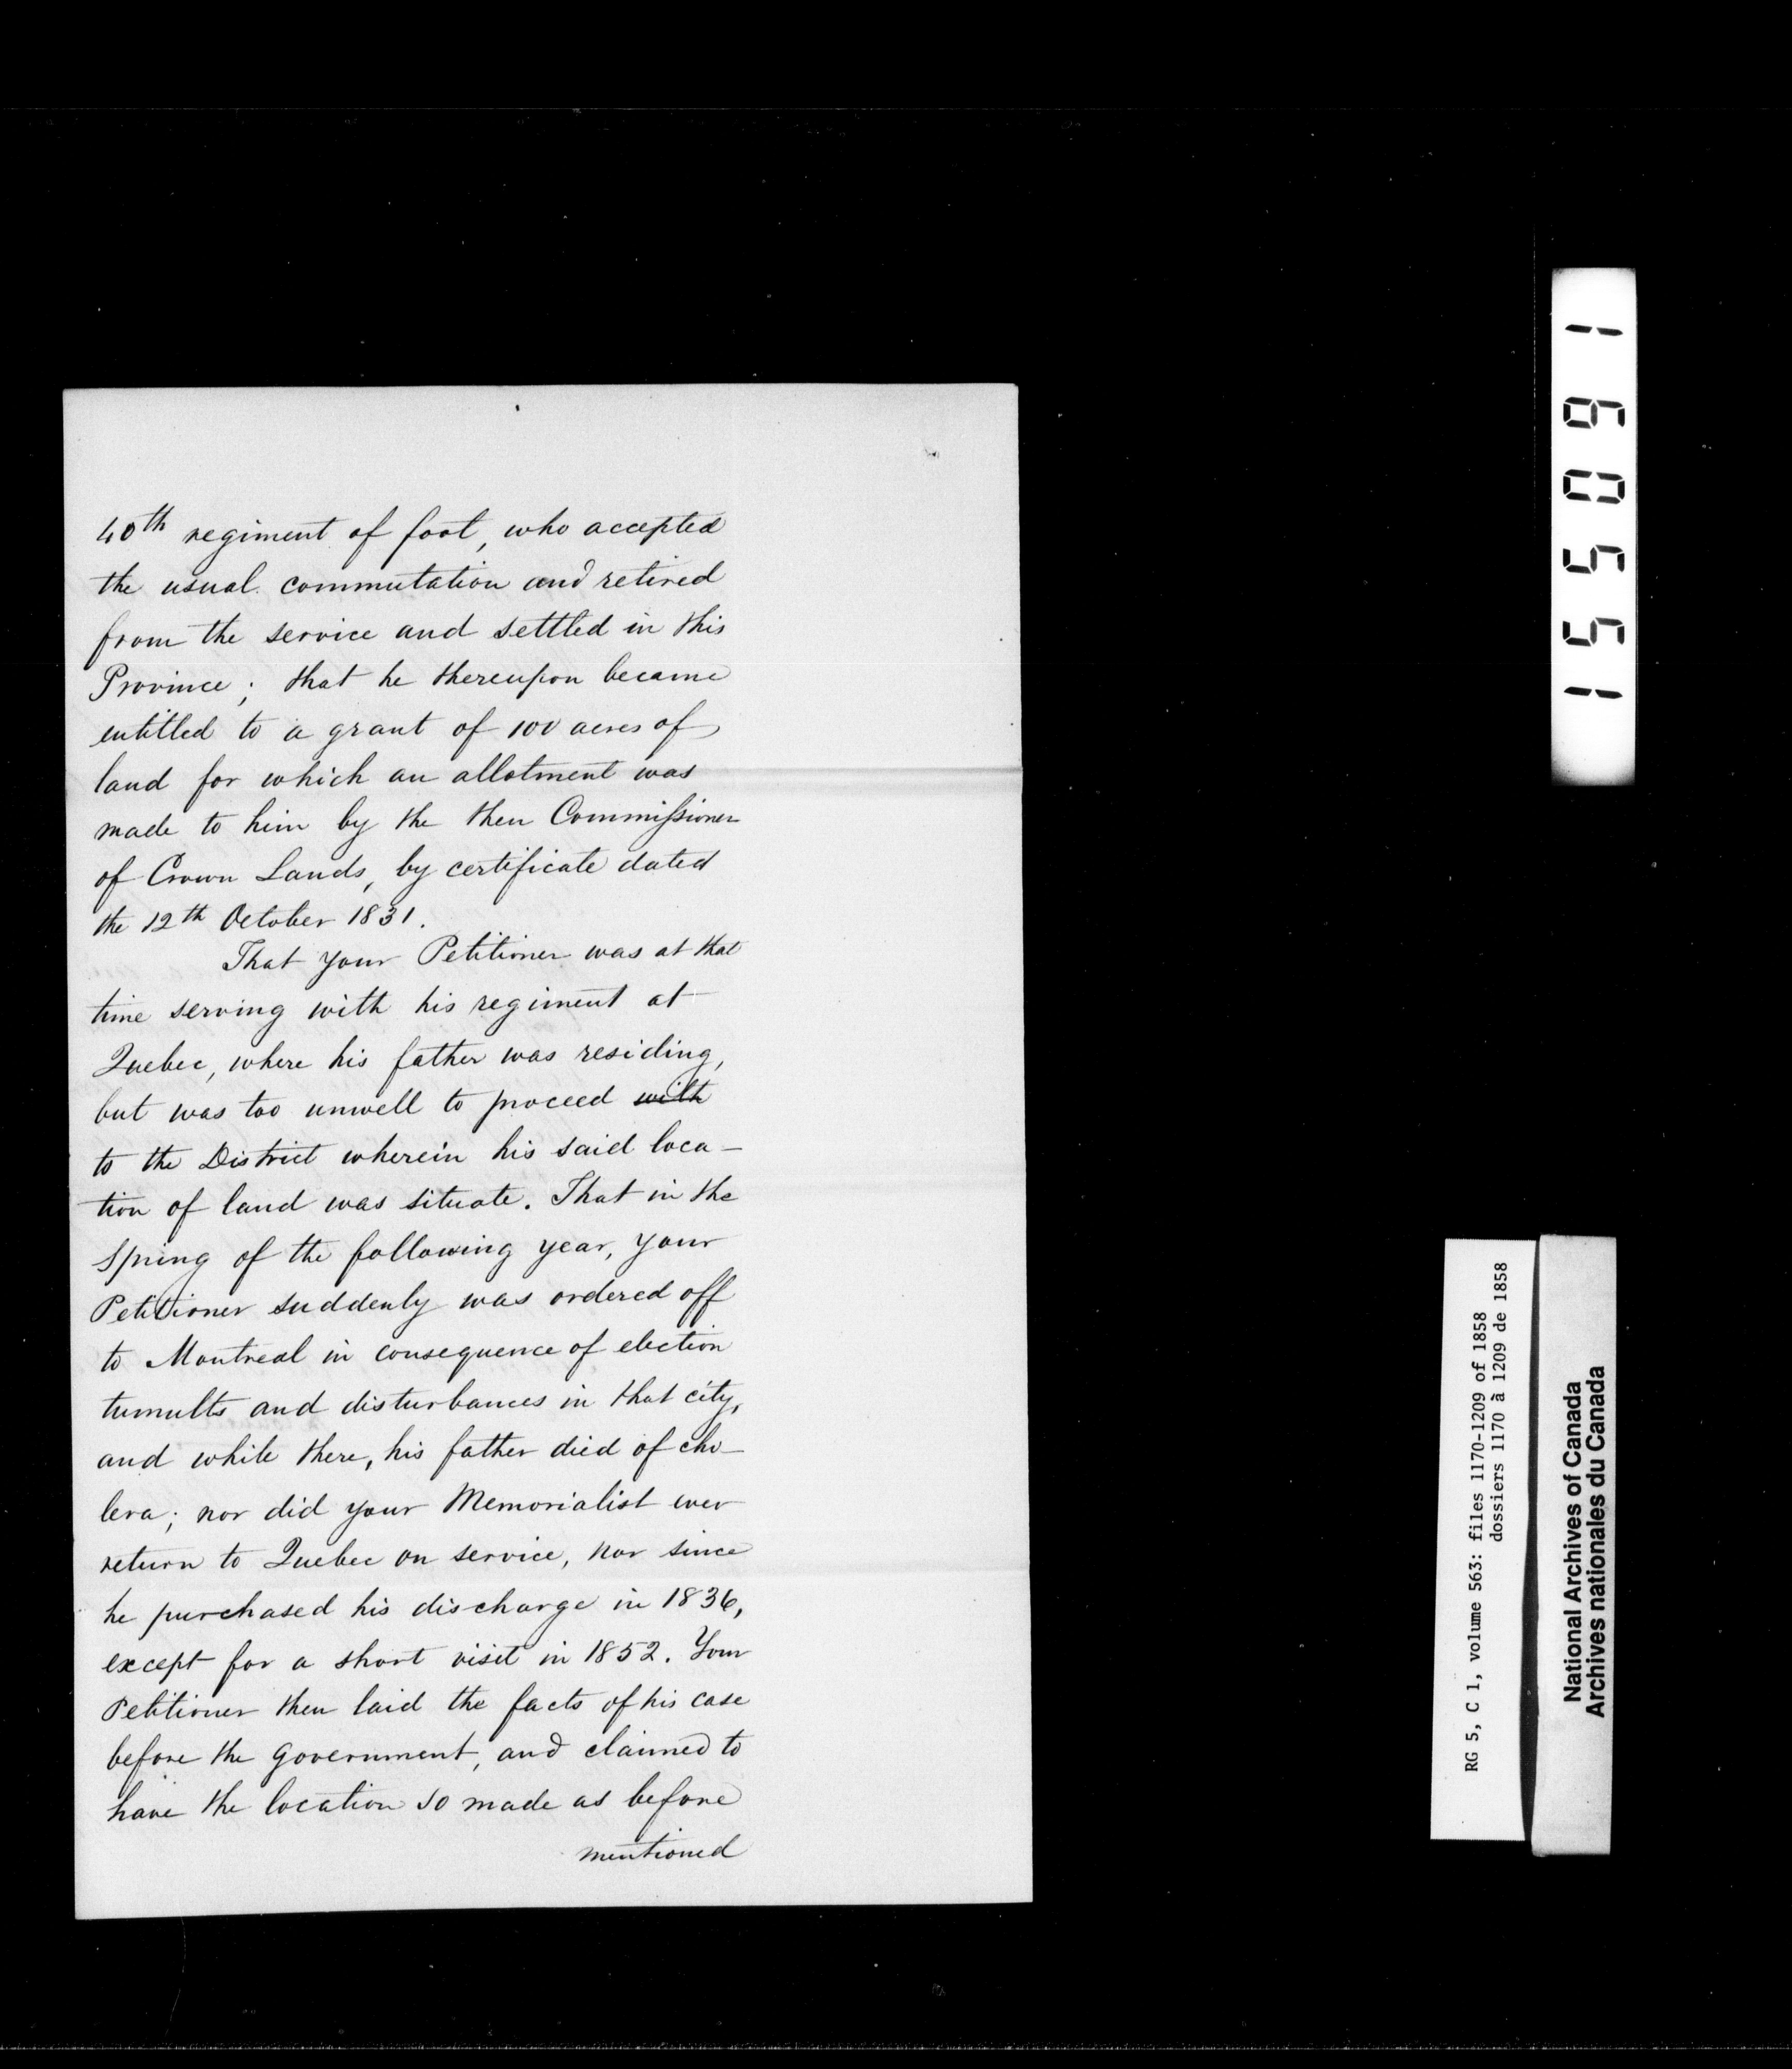 40th regiment of foot, who accepted
the usual commutation and retired
from the service and settled in this
Province; that he thereupon became
entitled to a grant of 100 acres of
land for which an allotment was
made to him by the then Commissioner
of Crown Lands, by certificate dated
the 12th October 1831.
That your Petitioner was at that
time serving with his regiment at
Quebec, where his father was residing,
but was too unwell to proceed with
to the District wherein his said loca-
tion of land was situate. That in the
Spring of the following year, your
Petitioner suddenly was ordered off
to Montreal in consequence of election
tumults and disturbances in that city,
and while there, his father died of cho-
lera; nor did your Memorialist ever
return to Quebec on service, nor since
he purchased his discharge in 1836,
except for a short visit in 1852. Your
Petitioner then laid the facts of his case
before the Government, and claimed to
have the location so made as before
mentioned
155091
RG 5, C 1, volume 563: files 1170-1209 of 1858
dossiers 1170 à 1209 de 1858
National Archives of Canada
Archives nationales du Canada